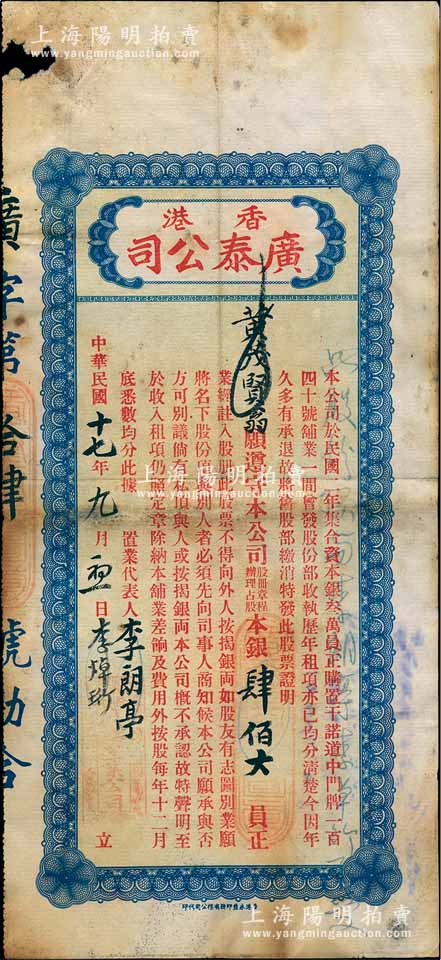 上海陽明拍賣
www.yangmingauction.com
香港
廣泰公司
本公司於民國二年集合資本銀叁萬員正購置干諾道中門牌一百
四十號舖業一間曾發股份部收執歷年租項亦已均分清楚今因年
久多有承退故將舊股部繳消特發此股票證明
黃茂賢翁願遵守本公司股冊章程辦理占股本銀肆佰大員正
業經註入股冊此股票不得向外人按揭銀両如股友有志圖別業願
將名下股份相讓別人者必須先向司事人商知候本公司願承與否
方可別議倘私自頂與人或按揭銀両本公司概不承認故特聲明至
於收入租項仍照定章除納本舖業差餉及費用外按股每年十二月
底悉數均分此據
置業代表人李朗亭
李煒衍
中華民國十七年九月 日 立
廣字第拾肆號
上海陽明拍賣
www.yangmingauction.com